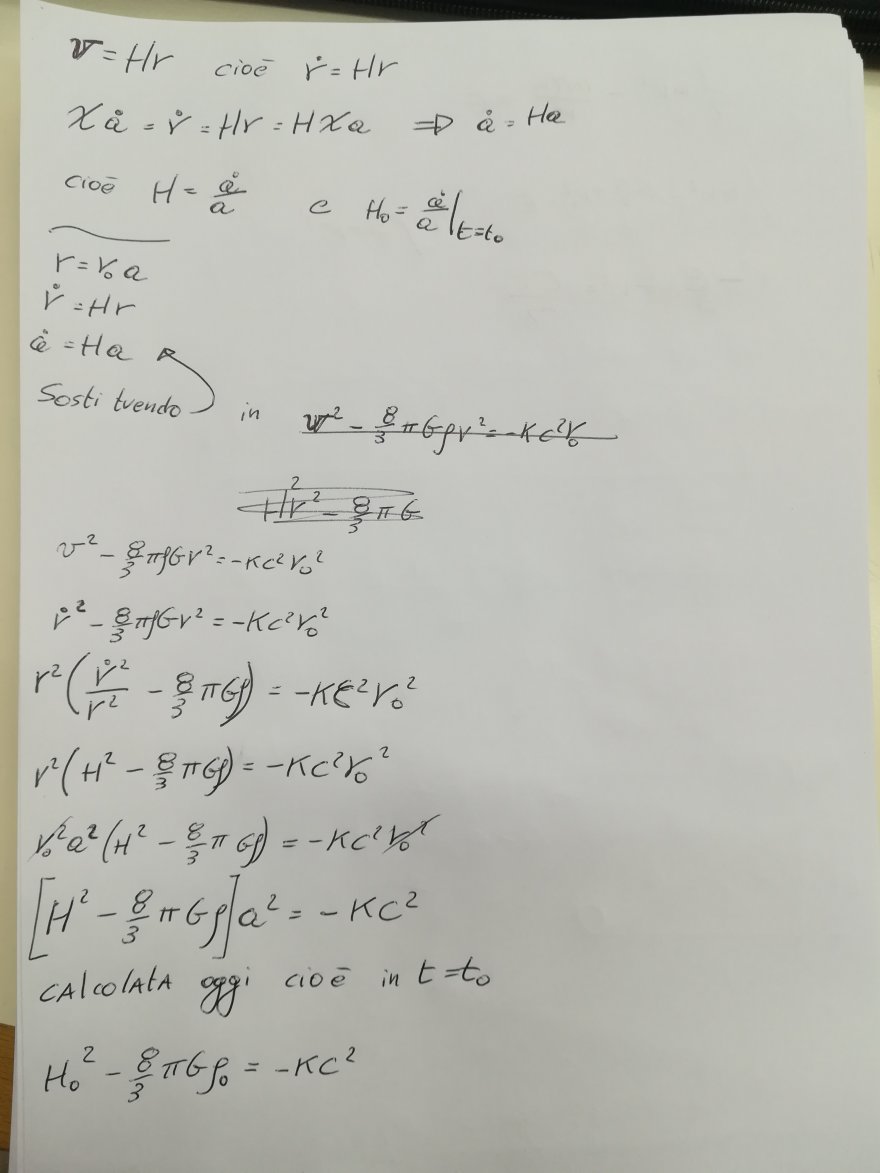 v = Hr cioē ṙ = Hr
χȧ = ṙ = Hr = Hχa ⇒ ȧ = Ha
cioē H = ȧ/a e H₀ = ȧ/a|t=t₀
r = r₀a
ṙ = Hr
ȧ = Ha
Sostituendo in v² - 8/3 πGρr² = -Kc²r₀
Hr² ² - 8/3 πG
v² - 8/3 πρGr² = -Kc²r₀²
ṙ² - 8/3 πρGr² = -Kc²r₀²
r²(ṙ²/r² - 8/3 πGρ) = -Kc²r₀²
r²(H² - 8/3 πGρ) = -Kc²r₀²
r₀²a²(H² - 8/3 πGρ) = -Kc²r₀²
[H² - 8/3 πGρ]a² = -Kc²
CAlcolAtA oggi cioē in t = t₀
H₀² - 8/3 πGρ₀ = -Kc²